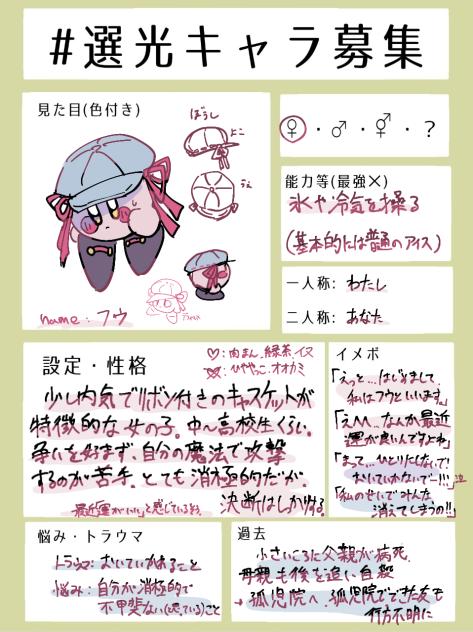 #選光キャラ募集
見た目(色付き)
ぼうし
よこ
うえ
name: フウ
♀・♂・⚥・?
能力等(最強×)
氷や冷気を操る
(基本的には普通のアイス)
一人称: わたし
二人称: あなた
設定・性格
♡: 肉まん、緑茶、イヌ
ひややっこ・オオカミ
少し内気でリボン付きのキャスケットが
特徴的な女の子。中~高校生くらい。
争いを好まず、自分の魔法で攻撃
するのが苦手。とても消極的だが、
決断はしかける。
最近運がいいと感じているらしい
イメボ
「えっと...はじめまして、
私はフウといいます。」
「えへへ...なんか最近
運が良いんですよね」
「まって...ひとりにしないで!
おいていかないで―!!!」
「私のせいでみんな
消えてしまうの!!」
悩み・トラウマ
トラウマ: おいていかれること
悩み: 自分が消極的で
不甲斐ない(と思っている)こと
過去
小さいころに父親が病死、
母親も後を追い自殺
→孤児院へ。孤児院でできた友も
行方不明に